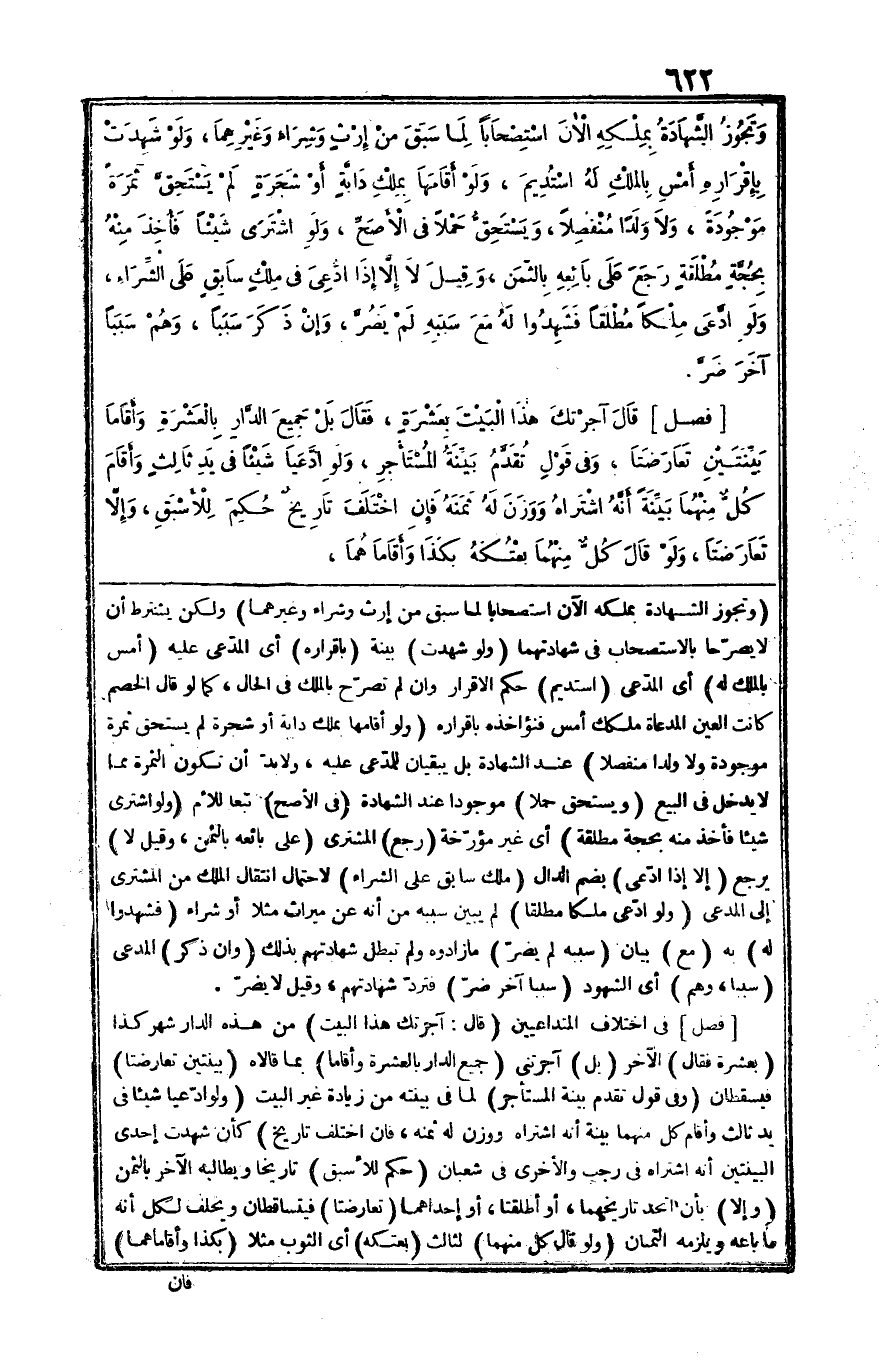 ٦٢٢
وَتَجُوزُ الشَّهَادَةُ بِمِلْكِهِ الْآنَ اسْتِصْحَابًا لِمَا سَبَقَ مِنْ إِرْثٍ وَشِرَاءٍ وَغَيْرِهِمَا ، وَلَوْ شَهِدَتْ
بِإِقْرَارِهِ أَمْسِ بِالْمِلْكِ لَهُ اسْتُدِيمَ ، وَلَوْ أَقَامَهَا بِمِلْكِ دَابَّةٍ أَوْ شَجَرَةٍ لَمْ يَسْتَحِقَّ ثَمَرَةً
مَوْجُودَةً ، وَلَا وَلَدًا مُنْفَصِلًا ، وَيَسْتَحِقُّ حَمْلًا فِى الْأَصَحِّ ، وَلَوِ اشْتَرَى شَيْئًا فَأُخِذَ مِنْهُ
بِحُجَّةٍ مُطْلَقَةٍ رَجَعَ عَلَى بَائِعِهِ بِالثَّمَنِ ، وَقِيلَ لَا إِلَّا إِذَا ادُّعِىَ فِى مِلْكٍ سَابِقٍ عَلَى الشِّرَاءِ ،
وَلَوِ ادَّعَى مِلْكًا مُطْلَقًا فَشَهِدُوا لَهُ مَعَ سَبَبِهِ لَمْ يَضُرَّ ، وَإِنْ ذَكَرَ سَبَبًا ، وَهُمْ سَبَبًا
آخَرَ ضَرَّ .
[ فصل ] قَالَ آجَرْتُكَ هٰذَا الْبَيْتَ بِعَشْرَةٍ ، فَقَالَ بَلْ جَمِيعَ الدَّارِ بِالْعَشْرَةِ وَأَقَامَا
بَيِّنَتَيْنِ تَعَارَضَتَا ، وَفِى قَوْلٍ تُقَدَّمُ بَيِّنَةُ الْمُسْتَأْجِرِ ، وَلَوِ ادَّعَيَا شَيْئًا فِى يَدِ ثَالِثٍ وَأَقَامَ
كُلٌّ مِنْهُمَا بَيِّنَةً أَنَّهُ اشْتَرَاهُ وَوَزَنَ لَهُ ثَمَنَهُ فَإِنِ اخْتَلَفَ تَارِيخٌ حُكِمَ لِلْأَسْبَقِ ، وَإِلَّا
تَعَارَضَتَا ، وَلَوْ قَالَ كُلٌّ مِنْهُمَا بِعْتُكَهُ بِكَذَا وَأَقَامَاهُمَا ،
(وتجوز الشهادة بملكه الآن استصحابا لما سبق من إرث وشراء وغيرهما) ولكن يشترط أن
لايصرّحا بالاستصحاب فى شهادتهما (ولو شهدت) بينة (باقراره) أى المدّعى عليه (أمس
بالملك له) أى المدّعى (استديم) حكم الاقرار وان لم تصرّح بالملك فى الحال ، كما لو قال الخصم
كانت العين المدعاة ملكك أمس فنؤاخذه باقراره (ولو أقامها بملك دابة أو شجرة لم يستحق ثمرة
موجودة ولا ولدا منفصلا) عند الشهادة بل يبقيان للمدّعى عليه ، ولابدّ أن تكون الثمرة مما
لايدخل فى البيع (ويستحق حملا) موجودا عند الشهادة (فى الأصح) تبعا للأم (ولو اشترى
شيئا فأخذ منه بحجة مطلقة) أى غير مؤرّخة (رجع) المشترى (على بائعه بالثمن ، وقيل لا)
يرجع (إلا إذا ادّعى) بضم الدال (ملك سابق على الشراء) لاحتمال انتقال الملك من المشترى
إلى المدعى (ولو ادّعى ملكا مطلقا) لم يبين سببه من أنه عن ميراث مثلا أو شراء (فشهدوا
له) به (مع) بيان (سببه لم يضرّ) مازادوه ولم تبطل شهادتهم بذلك (وان ذكر) المدعى
(سببا ، وهم) أى الشهود (سببا آخر ضرّ) فتردّ شهادتهم ، وقيل لايضرّ .
[فصل] فى اختلاف المتداعيين (قال : آجرتك هذا البيت) من هذه الدار شهر كذا
(بعشرة فقال) الآخر (بل) آجرتنى (جميع الدار بالعشرة وأقاما) بما قالاه (بينتين تعارضتا)
فيسقطان (وفى قول تقدم بينة المستأجر) لما فى بينته من زيادة غير البيت (ولو ادّعيا شيئا فى
يد ثالث وأقام كل منهما بينة أنه اشتراه ووزن له ثمنه ، فان اختلف تاريخ) كأن شهدت إحدى
البينتين أنه اشتراه فى رجب والأخرى فى شعبان (حكم للأسبق) تاريخا ويطالبه الآخر بالثمن
(وإلا) بأن اتحد تاريخهما ، أو أطلقتا ، أو إحداهما (تعارضتا) فيتساقطان ويحلف لكل أنه
ماباعه ويلزمه الثمنان (ولو قال كل منهما) لثالث (بعتكه) أى الثوب مثلا (بكذا وأقاماهما)
فان